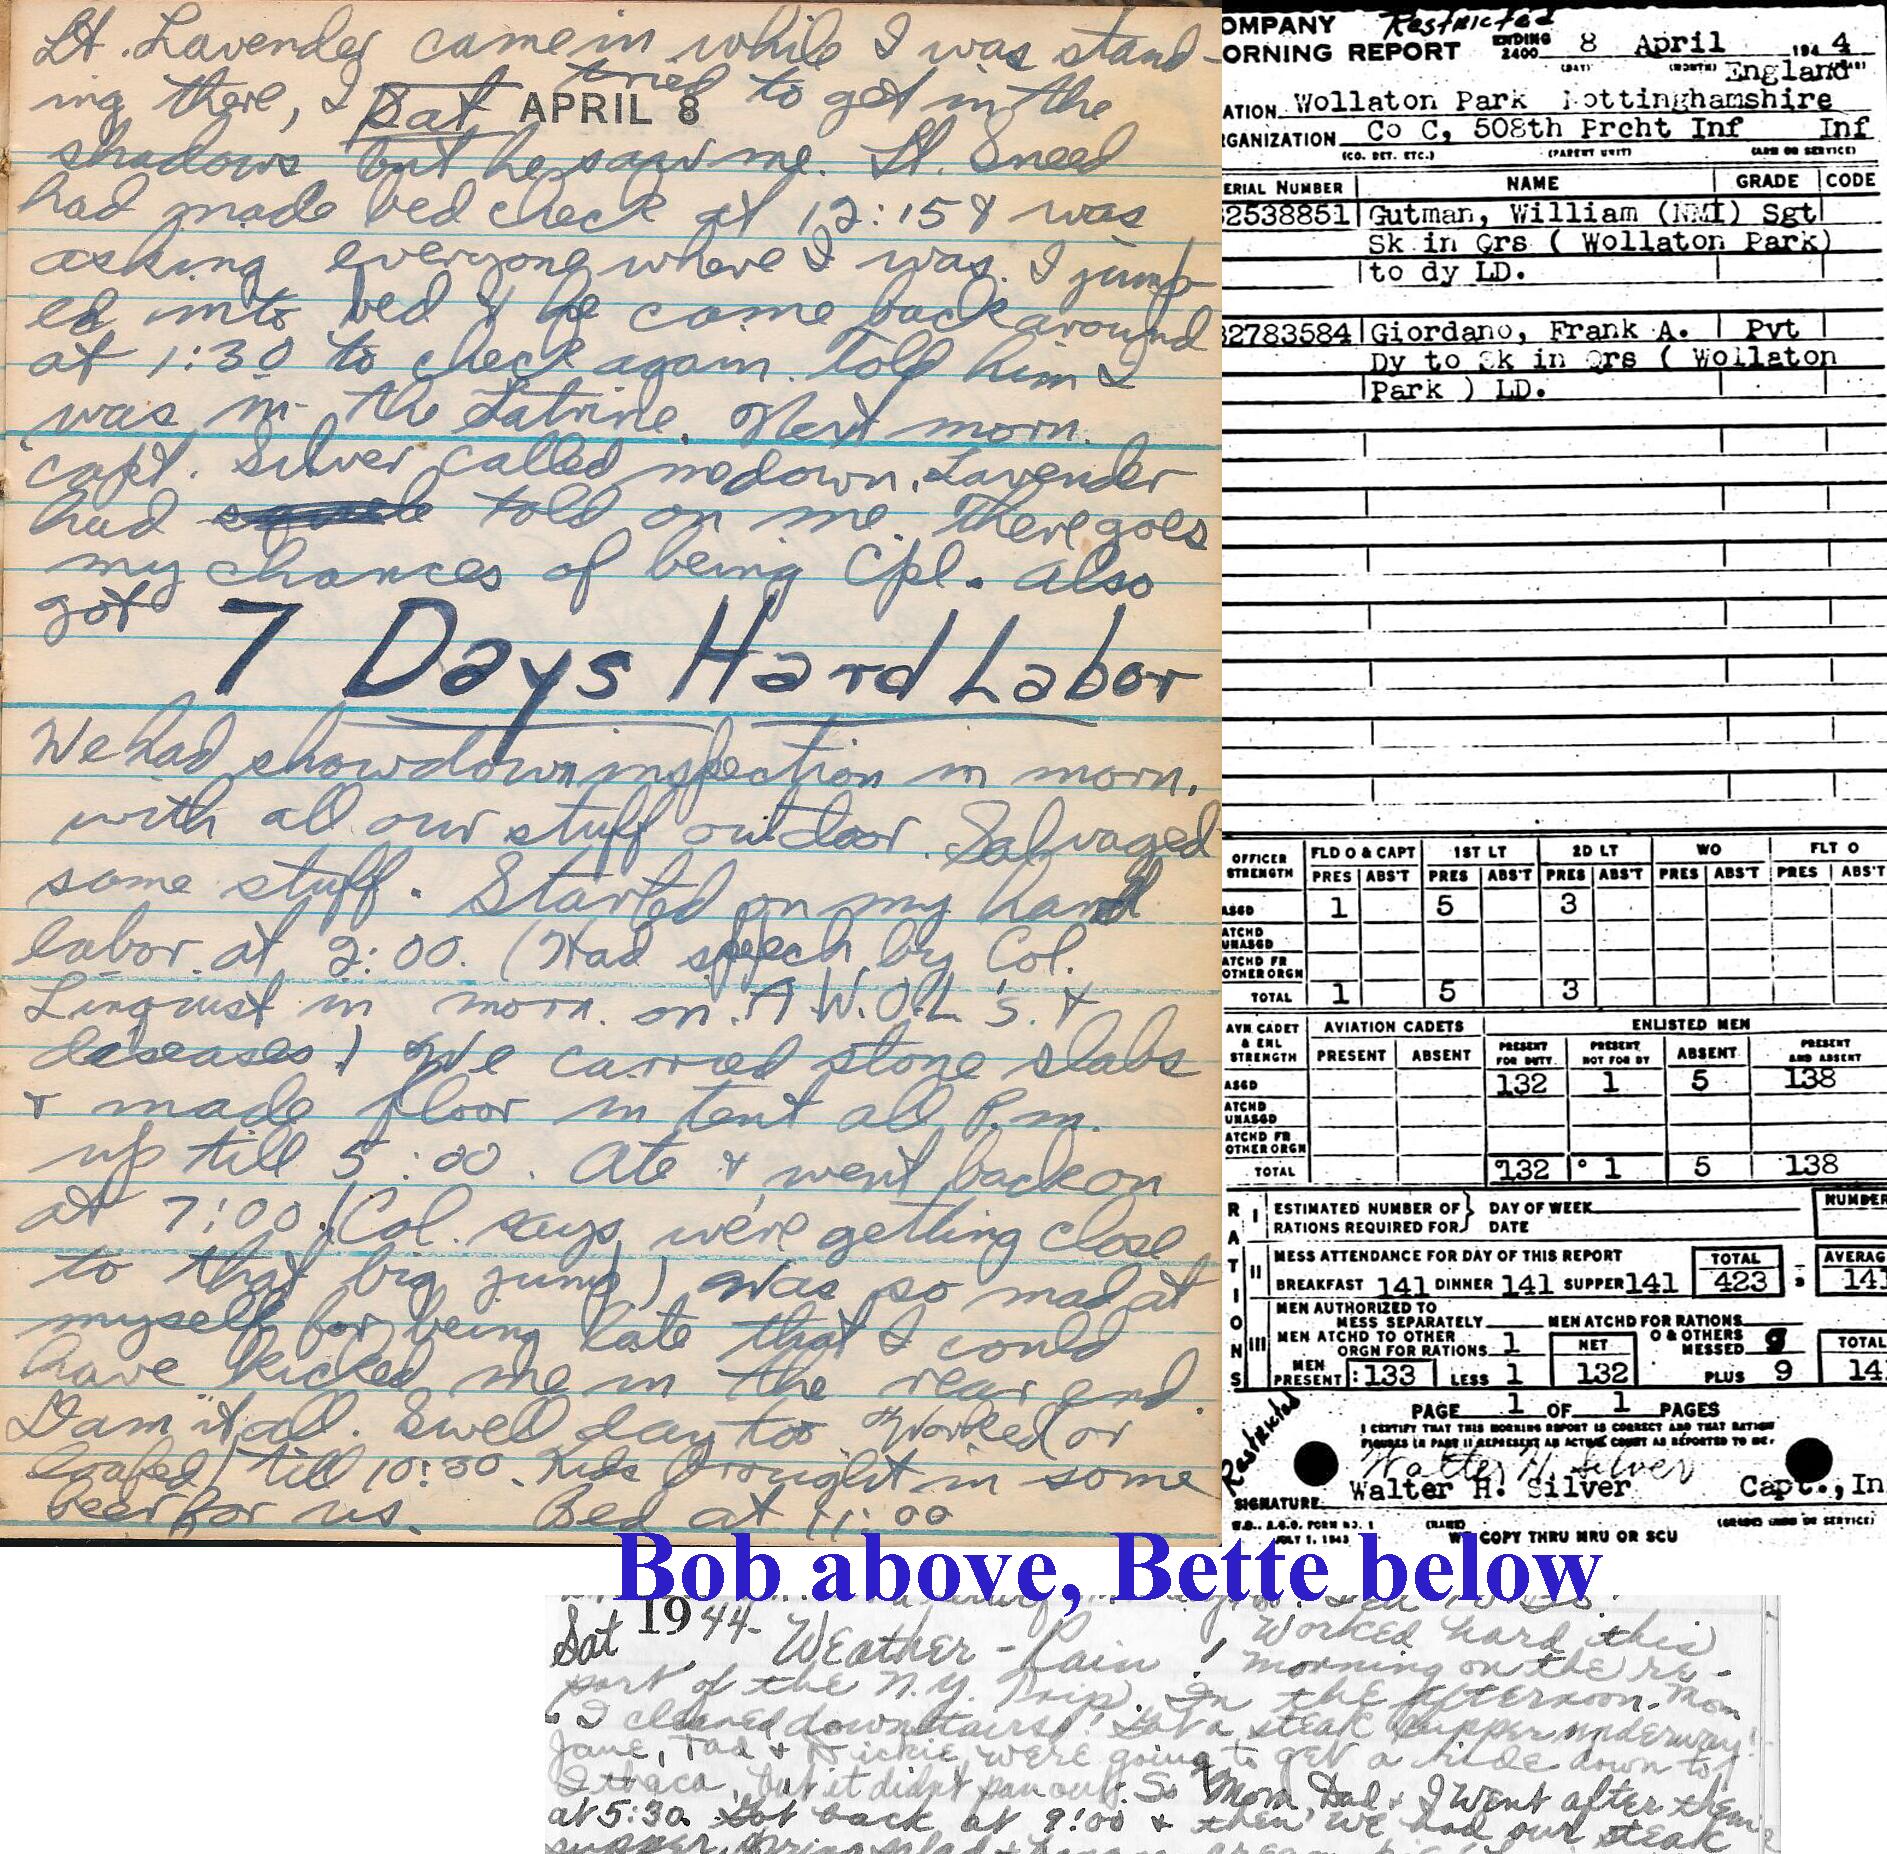 Lt. Lavender came in while I was stand-
ing there, I tried to get in the
Sat APRIL 8
shadows but he saw me. Lt. Sneed
had made bed check at 12:15 & was
asking everyone where I was. I jump-
ed into bed & he came back around
at 1:30 to check again. Told him I
was in the Latrine. Next morn.
capt. Silver called me down. Lavender
had told on me. There goes
my chances of being Cpl. Also
got 7 Days Hard Labor
We had showdown inspection in morn.
with all our stuff outdoor. Salvaged
some stuff. Started on my hard
labor at 2:00. (Had speech by Col.
Linquist in morn. on A.W.O.L.'s. &
daseases) We carried stone slabs
& made floor in tent all P.m.
up till 5:00. Ate & went back on
at 7:00. (Col. says we're getting close
to that big jump) Was so mad at
myself for being late that I could
have kicked me in the rear end.
Dam it all. Swell day too Worked (or
loafed) till 10:30. Kids brought in some
beer for us. Bed at 11:00
Restricted
OMPANY
ORNING REPORT ENDING 2400 8 April 194 4
(DAY) (MONTH)
England
ATION Wollaton Park Nottinghamshire
GANIZATION Co C, 508th Prcht Inf Inf
(CO. DET. ETC.) (PARENT UNIT) (ARM OR SERVICE)
ERIAL NUMBER NAME GRADE CODE
2538851 Gutman, William (NMI) Sgt
Sk in Qrs ( Wollaton Park)
to dy LD.
32783584 Giordano, Frank A. Pvt
Dy to Sk in Qrs ( Wollaton
Park ) LD.
OFFICER STRENGTH FLD O & CAPT 1ST LT 2D LT WO FLT O
PRES ABS'T PRES ABS'T PRES ABS'T PRES ABS'T PRES ABS'T
ASGD 1 5 3
ATCHD UNASGD
ATCHD FR OTHER ORGN
TOTAL 1 5 3
AVN CADET & ENL STRENGTH AVIATION CADETS ENLISTED MEN
PRESENT ABSENT PRESENT FOR DUTY PRESENT NOT FOR DY ABSENT PRESENT AND ABSENT
ASGD 132 1 5 138
ATCHD UNASGD
ATCHD FR OTHER ORGN
TOTAL 132 1 5 138
RATIONS
I ESTIMATED NUMBER OF RATIONS REQUIRED FOR DAY OF WEEK DATE NUMBER
II MESS ATTENDANCE FOR DAY OF THIS REPORT TOTAL AVERAG
BREAKFAST 141 DINNER 141 SUPPER 141 423 141
III MEN AUTHORIZED TO MESS SEPARATELY MEN ATCHD FOR RATIONS
MEN ATCHD TO OTHER ORGN FOR RATIONS 1 NET O & OTHERS MESSED 9 TOTAL
MEN PRESENT 133 LESS 1 132 PLUS 9 14
PAGE 1 OF 1 PAGES
I CERTIFY THAT THIS MORNING REPORT IS CORRECT AND THAT RATION
FIGURES IN PART II REPRESENT AN ACTUAL COUNT AS REPORTED TO ME.
Restricted
Walter H Silver
SIGNATURE Walter H. Silver Capt., In
W.D., A.G.O. FORM NO. 1 (NAME) (GRADE AND OR SERVICE)
JULY 1, 1943 COPY THRU MRU OR SCU
Bob above, Bette below
Sat 1944- Weather - Rain! Worked hard this
morning on the re-
port of the N.Y. Trip. In the afternoon - Mom
& I cleaned downstairs! Got a steak supper underway!
Jane, Tad & Nickie, were going to get a ride down to
Ithaca, but it didn't pan out. So Mom, Dad & I went after them
at 5:30. Got back at 9:00 & then we had our steak
supper,